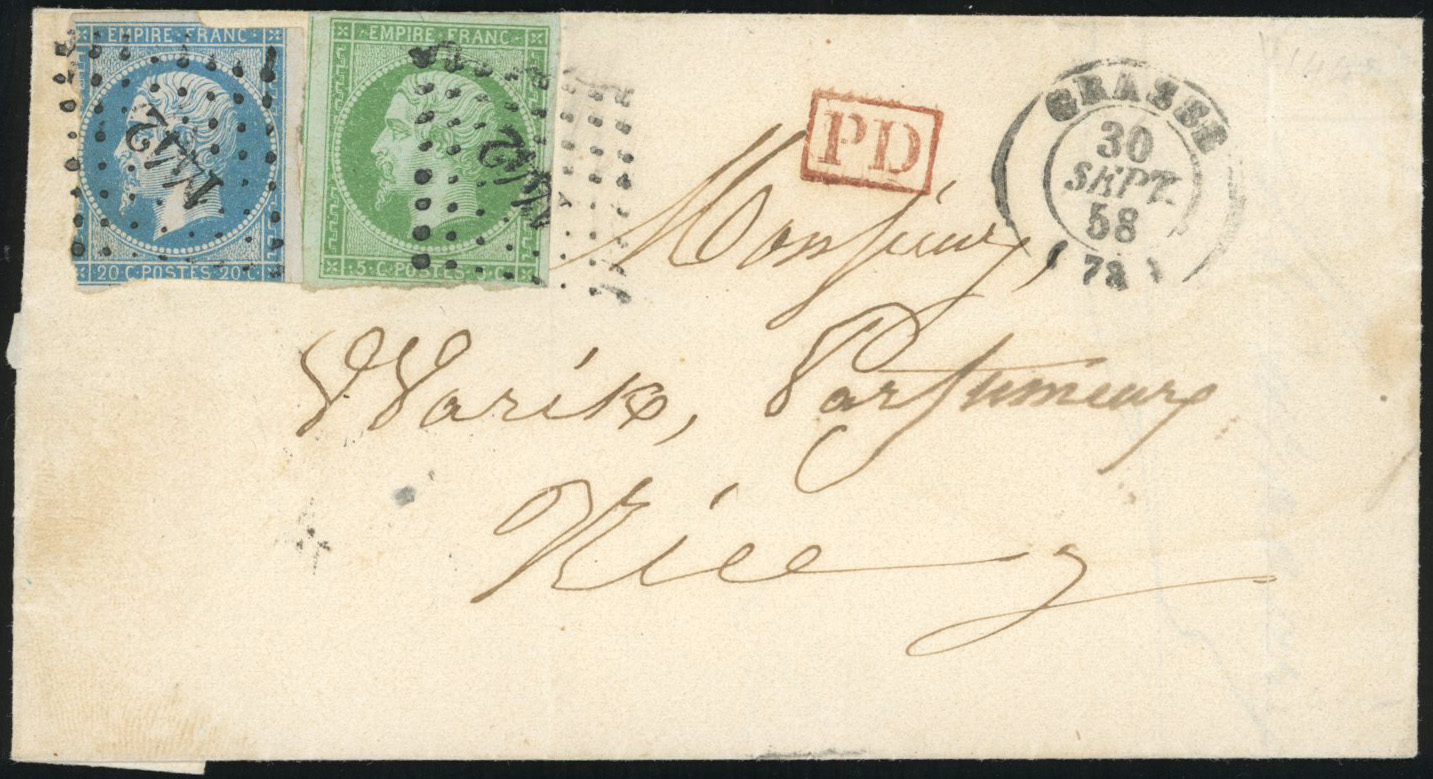 EMPIRE FRANC
20 C. POSTES 20 C.
EMPIRE FRANC
5 C. POSTES 5 C.
PD
GRASSE
30
SEPT.
58
(78)
Monsieur,
Warik, Parfumeur
Nice